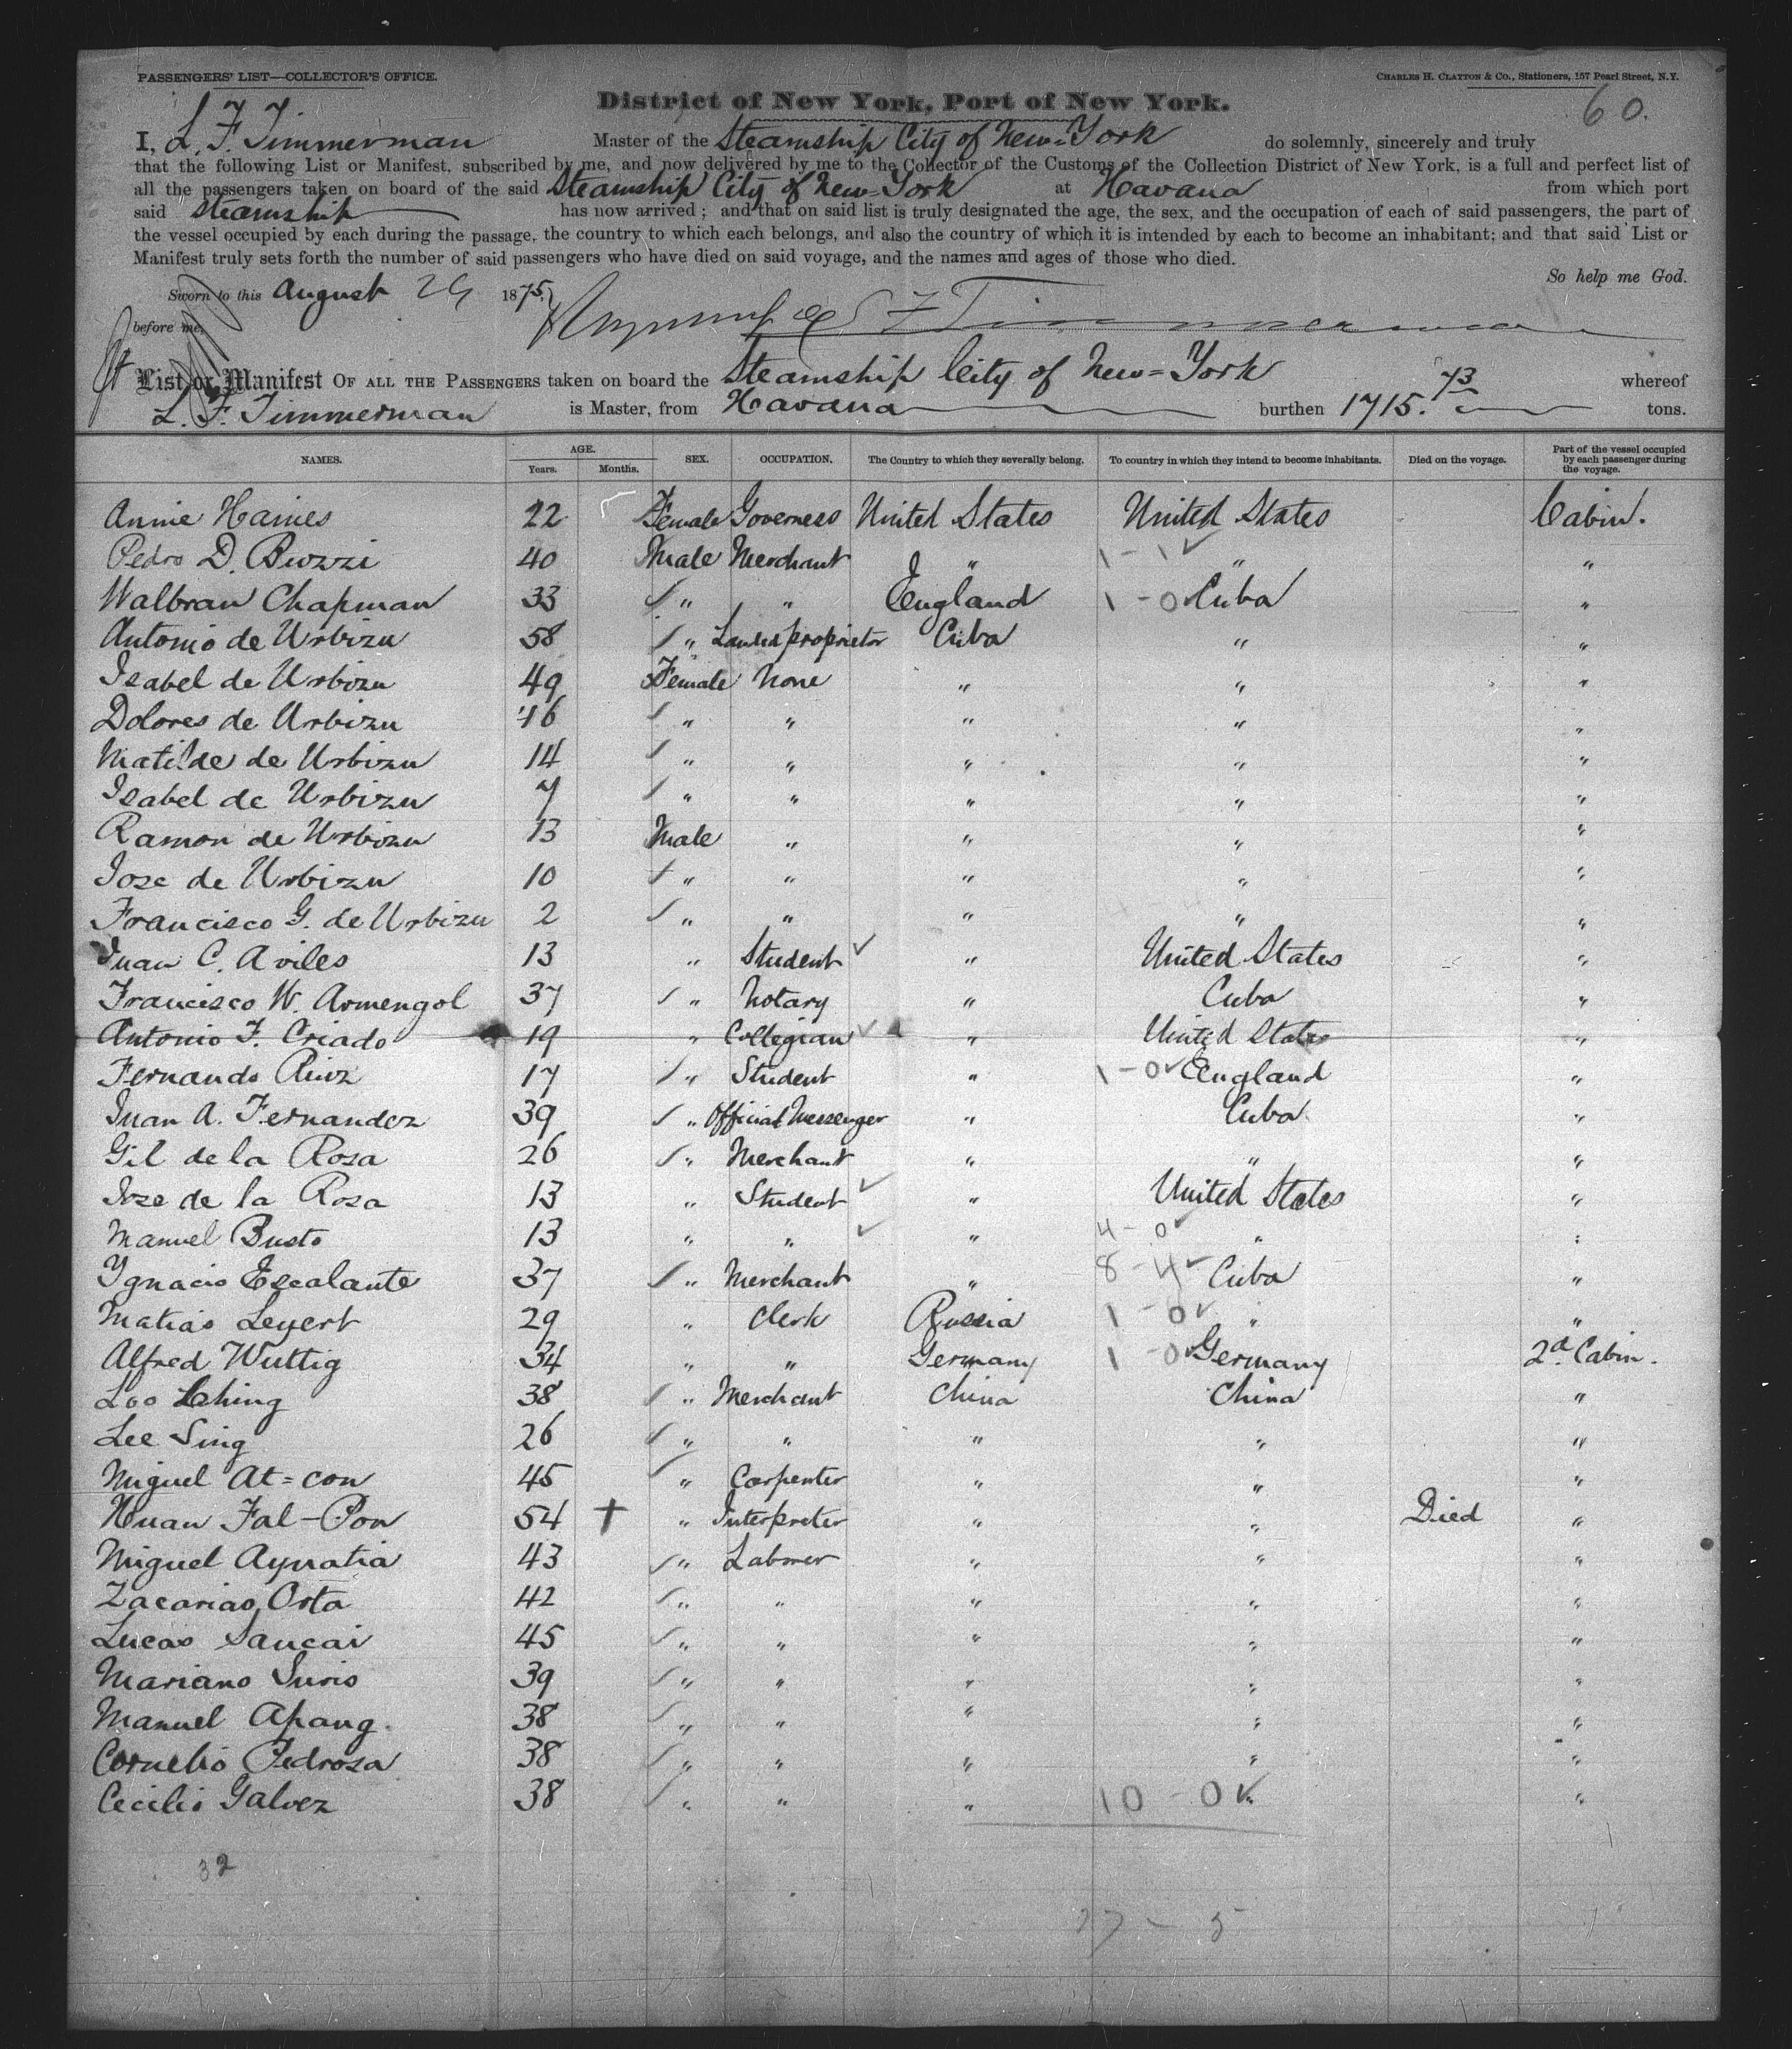 PASSENGERS' LIST—COLLECTOR'S OFFICE.
CHARLES H. CLAYTON & Co., Stationers, 157 Pearl Street, N.Y.
60.
District of New York, Port of New York.
I, L. F. Timmerman Master of the Steamship City of New-York do solemnly, sincerely and truly
that the following List or Manifest, subscribed by me, and now delivered by me to the Collector of the Customs of the Collection District of New York, is a full and perfect list of
all the passengers taken on board of the said Steamship City of New-York at Havana from which port
said Steamship has now arrived; and that on said list is truly designated the age, the sex, and the occupation of each of said passengers, the part of
the vessel occupied by each during the passage, the country to which each belongs, and also the country of which it is intended by each to become an inhabitant; and that said List or
Manifest truly sets forth the number of said passengers who have died on said voyage, and the names and ages of those who died.
So help me God.
Sworn to this August 1875.
before me, L F Timmerman
List or Manifest OF ALL THE PASSENGERS taken on board the Steamship City of New=York whereof
L. F. Timmerman is Master, from Havana burthen 1715. 73 tons.
NAMES. AGE. Years. Months. SEX. OCCUPATION. The Country to which they severally belong. To country in which they intend to become inhabitants. Died on the voyage. Part of the vessel occupied by each passenger during the voyage.
Annie Haines 22 Female Governess United States United States Cabin.
Pedro D. Buzzi 40 Male Merchant " 1 - 1 ✓ " "
Walbran Chapman 33 " " England 1 - 0 ✓ Cuba "
Antonio de Urbizu 58 " Landed proprietor Cuba " "
Isabel de Urbizu 49 Female None " " "
Dolores de Urbizu 16 " " " " "
Matilde de Urbizu 14 " " " " "
Isabel de Urbizu 7 " " " " "
Ramon de Urbizu 13 Male " " " "
Jose de Urbizu 10 " " " " "
Francisco G. de Urbizu 2 " " " " "
Juan C. Aviles 13 " Student ✓ " United States "
Francisco W. Armengol 37 " Notary " Cuba "
Antonio F. Criado 19 " Collegian ✓ " United States "
Fernando Ruiz 17 " Student " 1 - 0 ✓ England "
Juan A. Fernandez 39 " Official Messenger " Cuba "
Gil de la Rosa 26 " Merchant " " "
Jose de la Rosa 13 " Student ✓ " United States "
Manuel Busto 13 " " ✓ " 4 - 0 ✓ " "
Ygnacio Escalante 37 " Merchant " 8 - 4 ✓ Cuba "
Matias Leyert 29 " Clerk Russia 1 - 0 ✓ " "
Alfred Wuttig 34 " " Germany 1 - 0 ✓ Germany 2d. Cabin.
Loo Ching 38 " Merchant China China "
Lee Sing 26 " " " " "
Miguel At=con 45 " Carpenter " " "
Huan Fal-Pon 54 + " Interpreter " " Died "
Miguel Aynatia 43 " Laborer " " "
Zacarias Orta 42 " " " " "
Lucas Saucai 45 " " " " "
Mariano Suris 39 " " " " "
Manuel Apang. 38 " " " " "
Cornelio Pedrosa 38 " " " " "
Cecilio Galvez 38 " " " 10 - 0 ✓ "
32
27 - 5